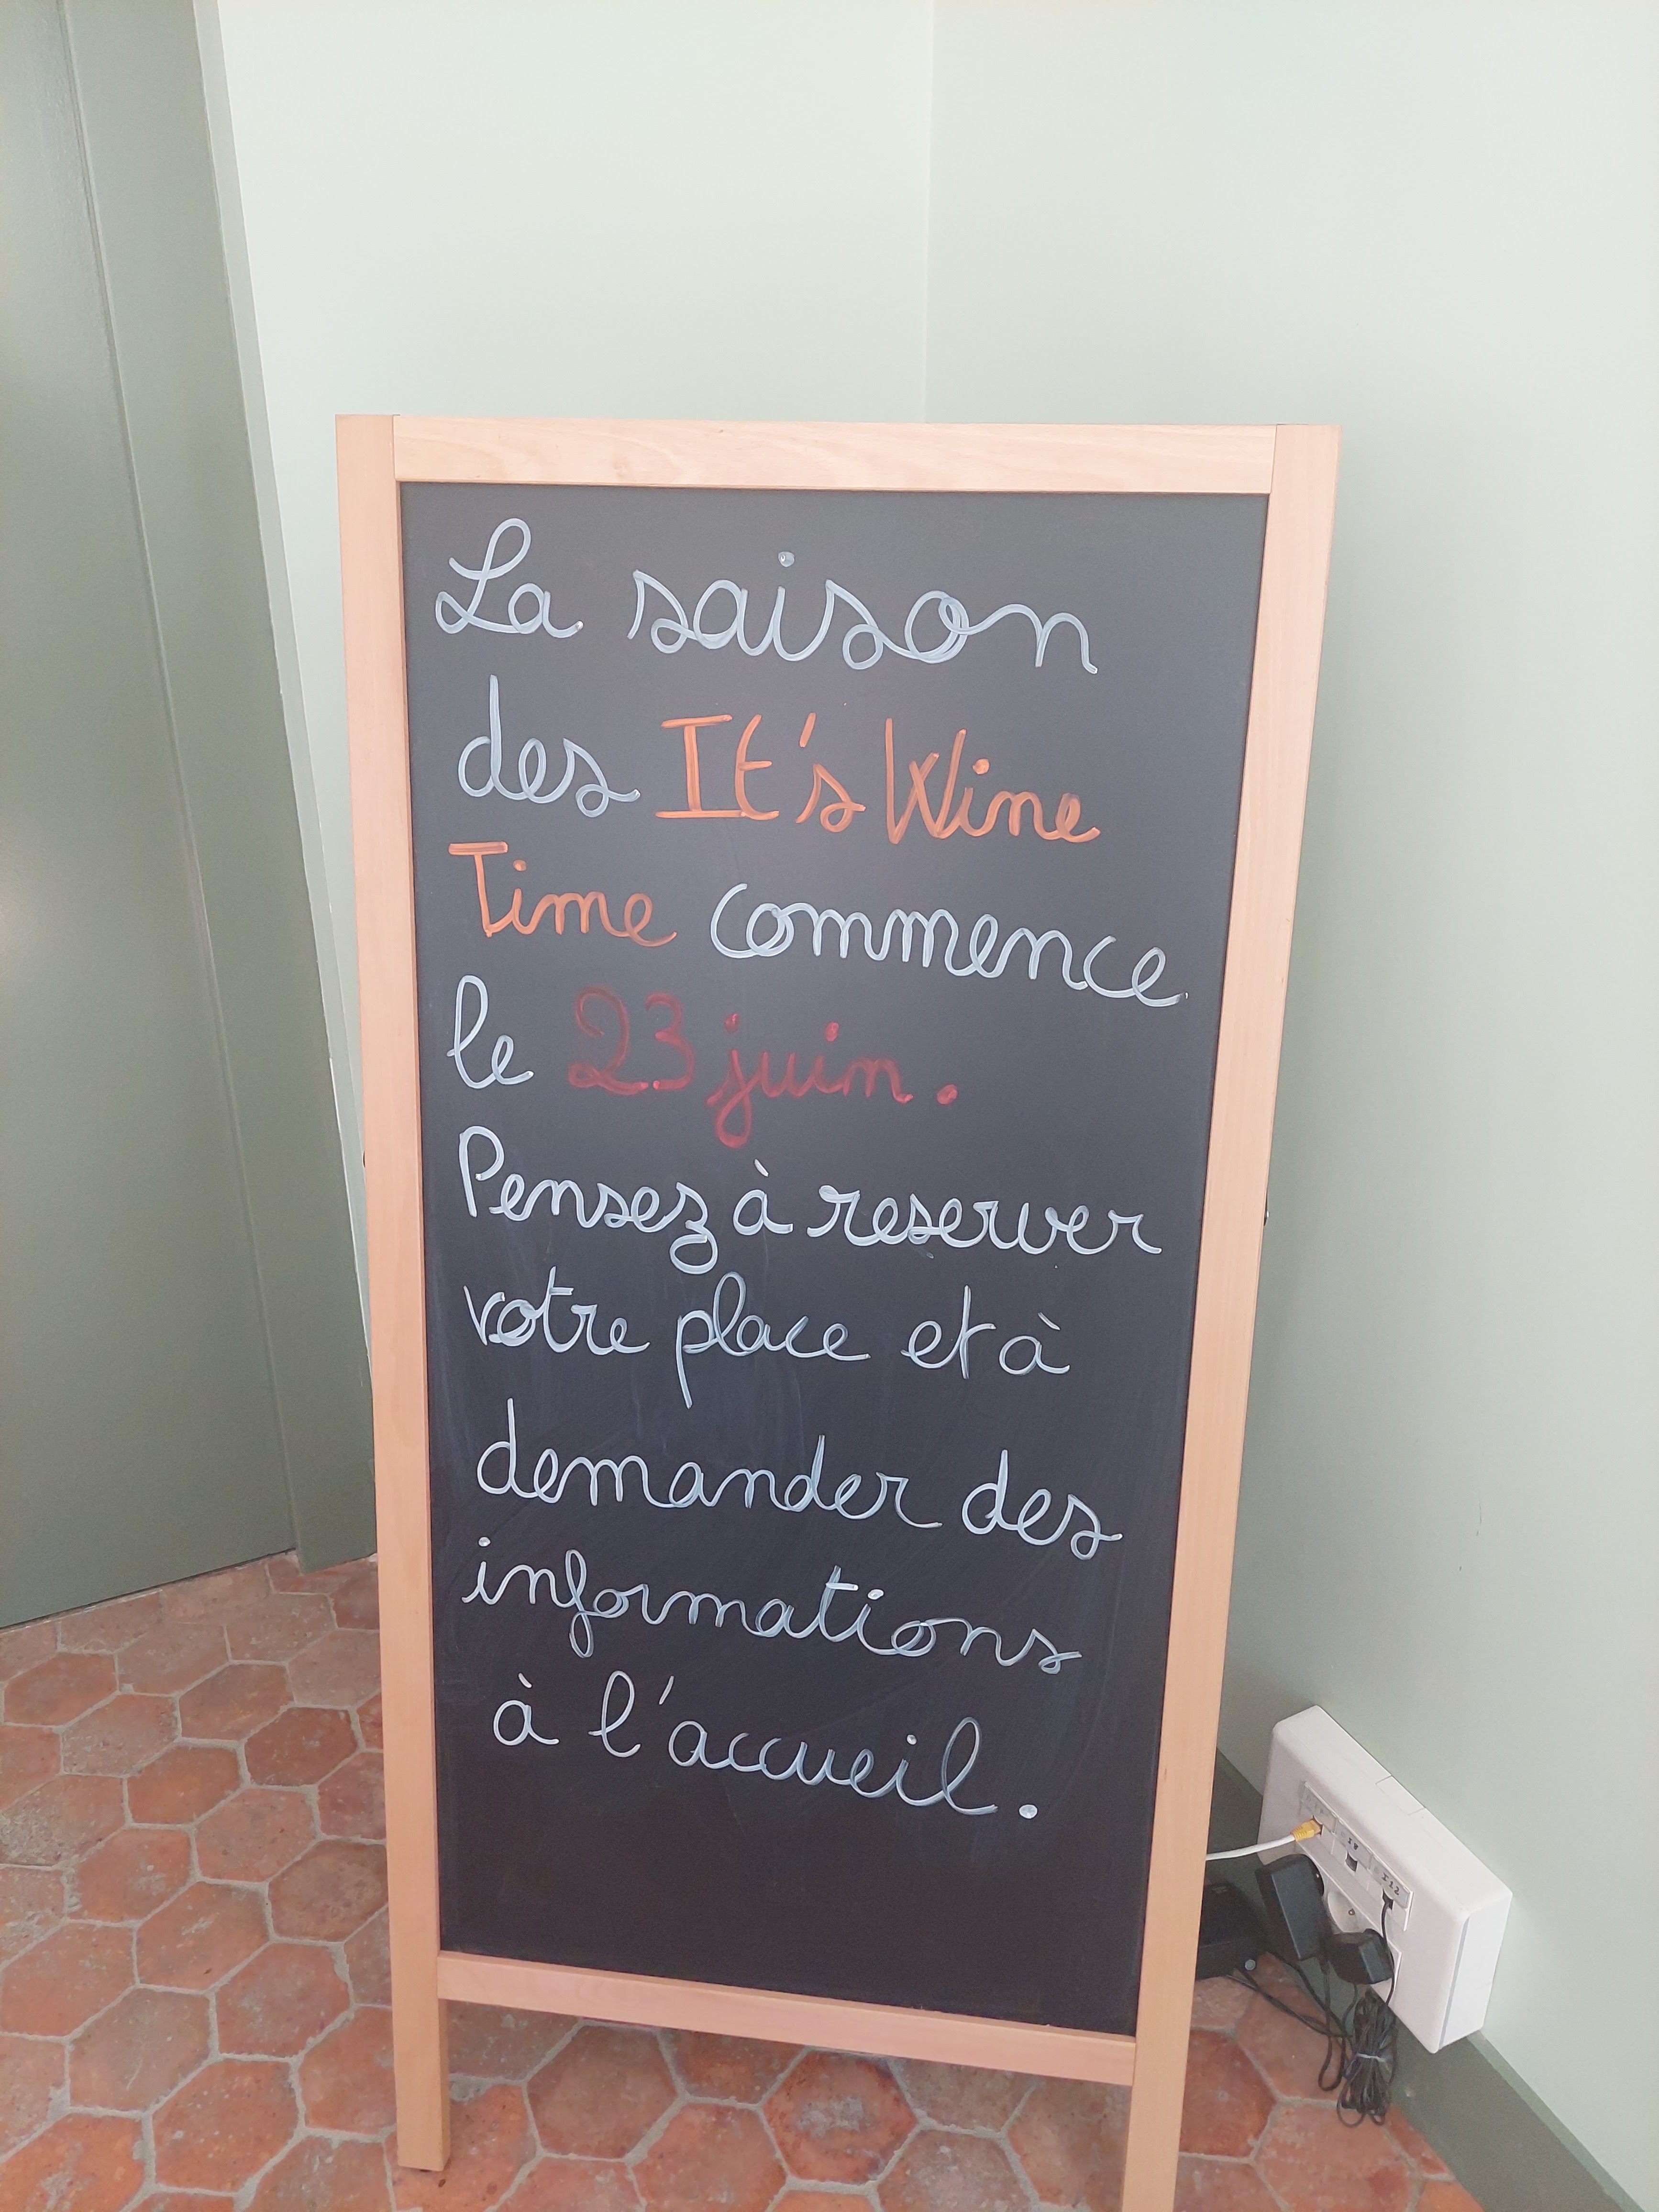 La saison
des It's Wine
Time commence
le 23 juin.
Pensez à reserver
votre place et à
demander des
informations
à l'accueil.